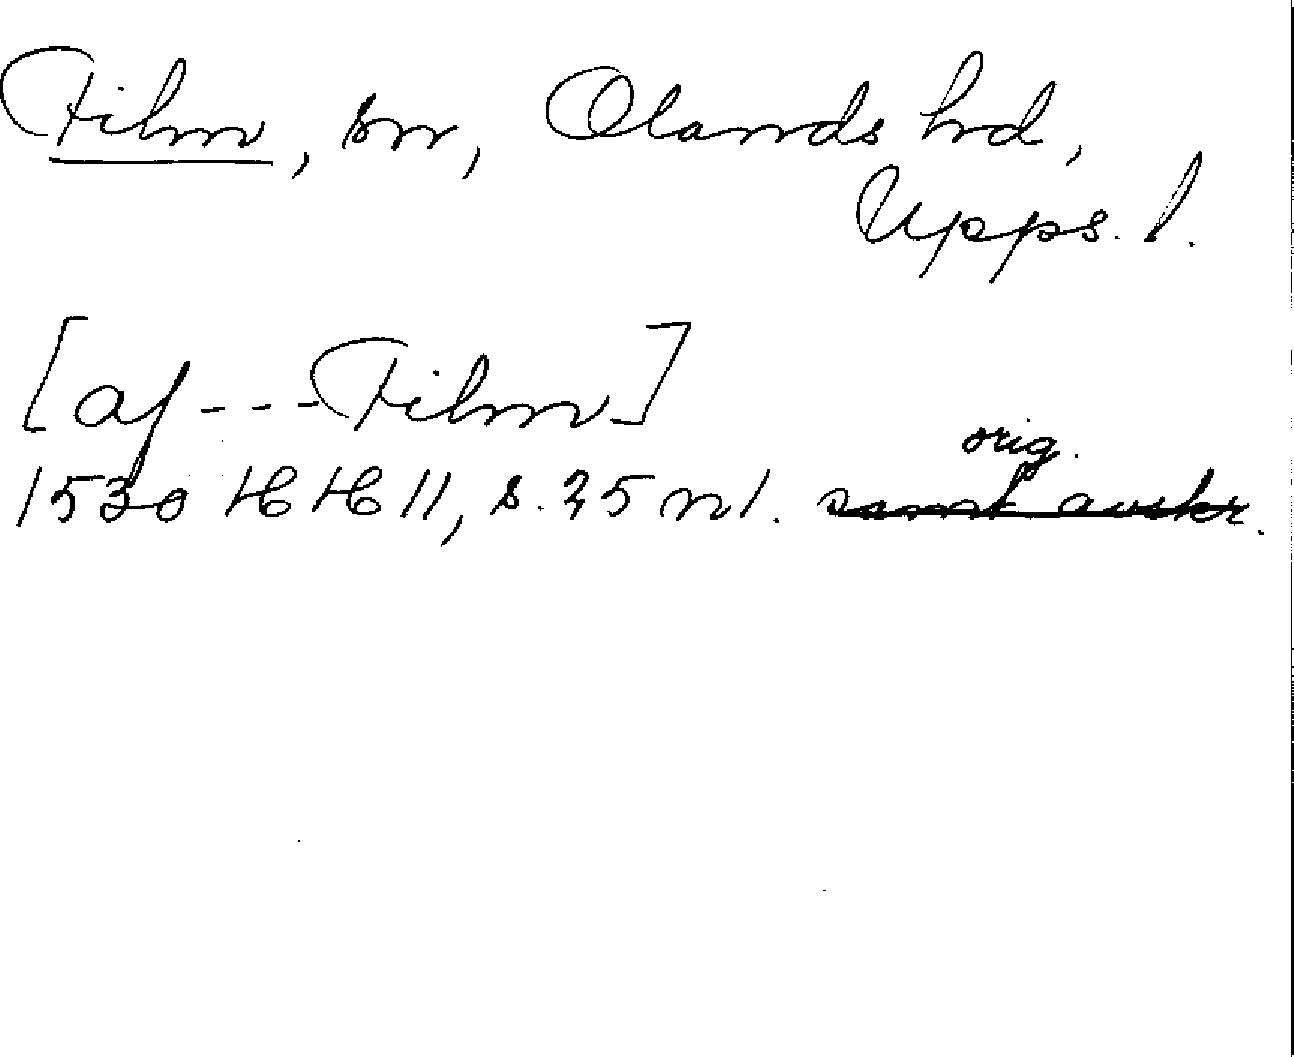 Film, sn, Olands hd,
Upps. l.
[af --- Film]
orig.
1530 HH 11, s. 25 nt. samt avskr.